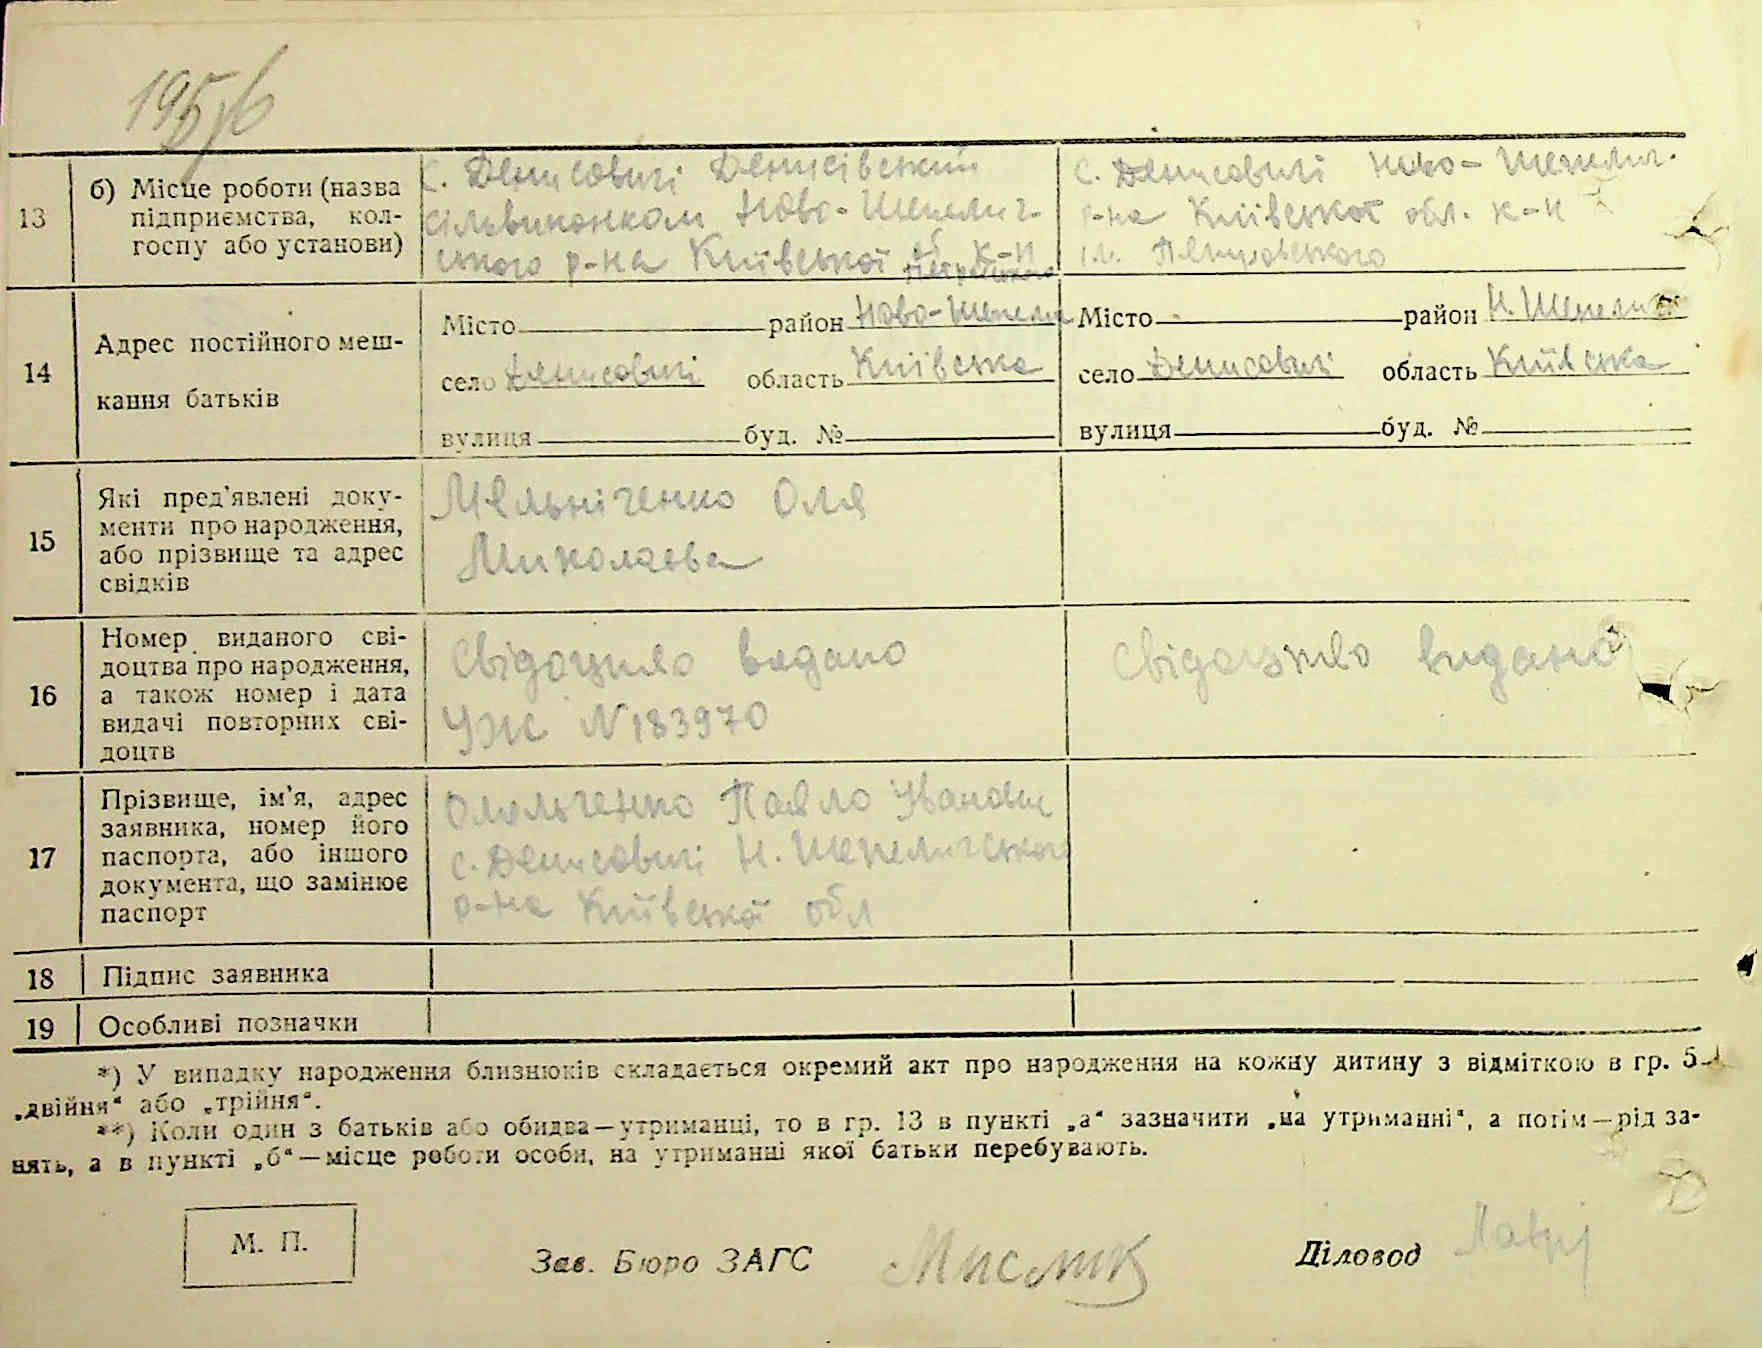 195/6
13 б) Місце роботи (назва підприємства, колгоспу або установи)
с. Денисовичі Денисівський
сільвиконком Ново-Шепелич-
ського р-на Київської об. к-п
Петровського
с. Денисовичі Ново-Шепелич.
р-на Київської обл. к-п
ім. Петровського
14 Адрес постійного меш-
кання батьків
Місто район Ново-Шепели
село Денисовичі область Київська
вулиця буд. №
Місто район Н. Шепели
село Денисовичі область Київська
вулиця буд. №
15 Які пред'явлені доку-
менти про народження,
або прізвище та адрес
свідків
Мельніченко Оля
Миколаєва
16 Номер виданого сві-
доцтва про народження,
а також номер і дата
видачі повторних сві-
доцтв
Свідоцтво видано
УЖ N 183970
Свідоцтво видано
17 Прізвище, ім'я, адрес
заявника, номер його
паспорта, або іншого
документа, що замінює
паспорт
Павло Іванович
с. Денисовичі Н. Шепеличського
р-на Київської обл
18 Підпис заявника
19 Особливі позначки
*) У випадку народження близнюків складається окремий акт про народження на кожну дитину з відміткою в гр. 5
„двійня“ або „трійня“.
**) Коли один з батьків або обидва—утриманці, то в гр. 13 в пункті „а“ зазначити „на утриманні“, а потім—рід за-
нять, а в пункті „б“—місце роботи особи, на утриманні якої батьки перебувають.
М. П.
Зав. Бюро ЗАГС Мислик
Діловод